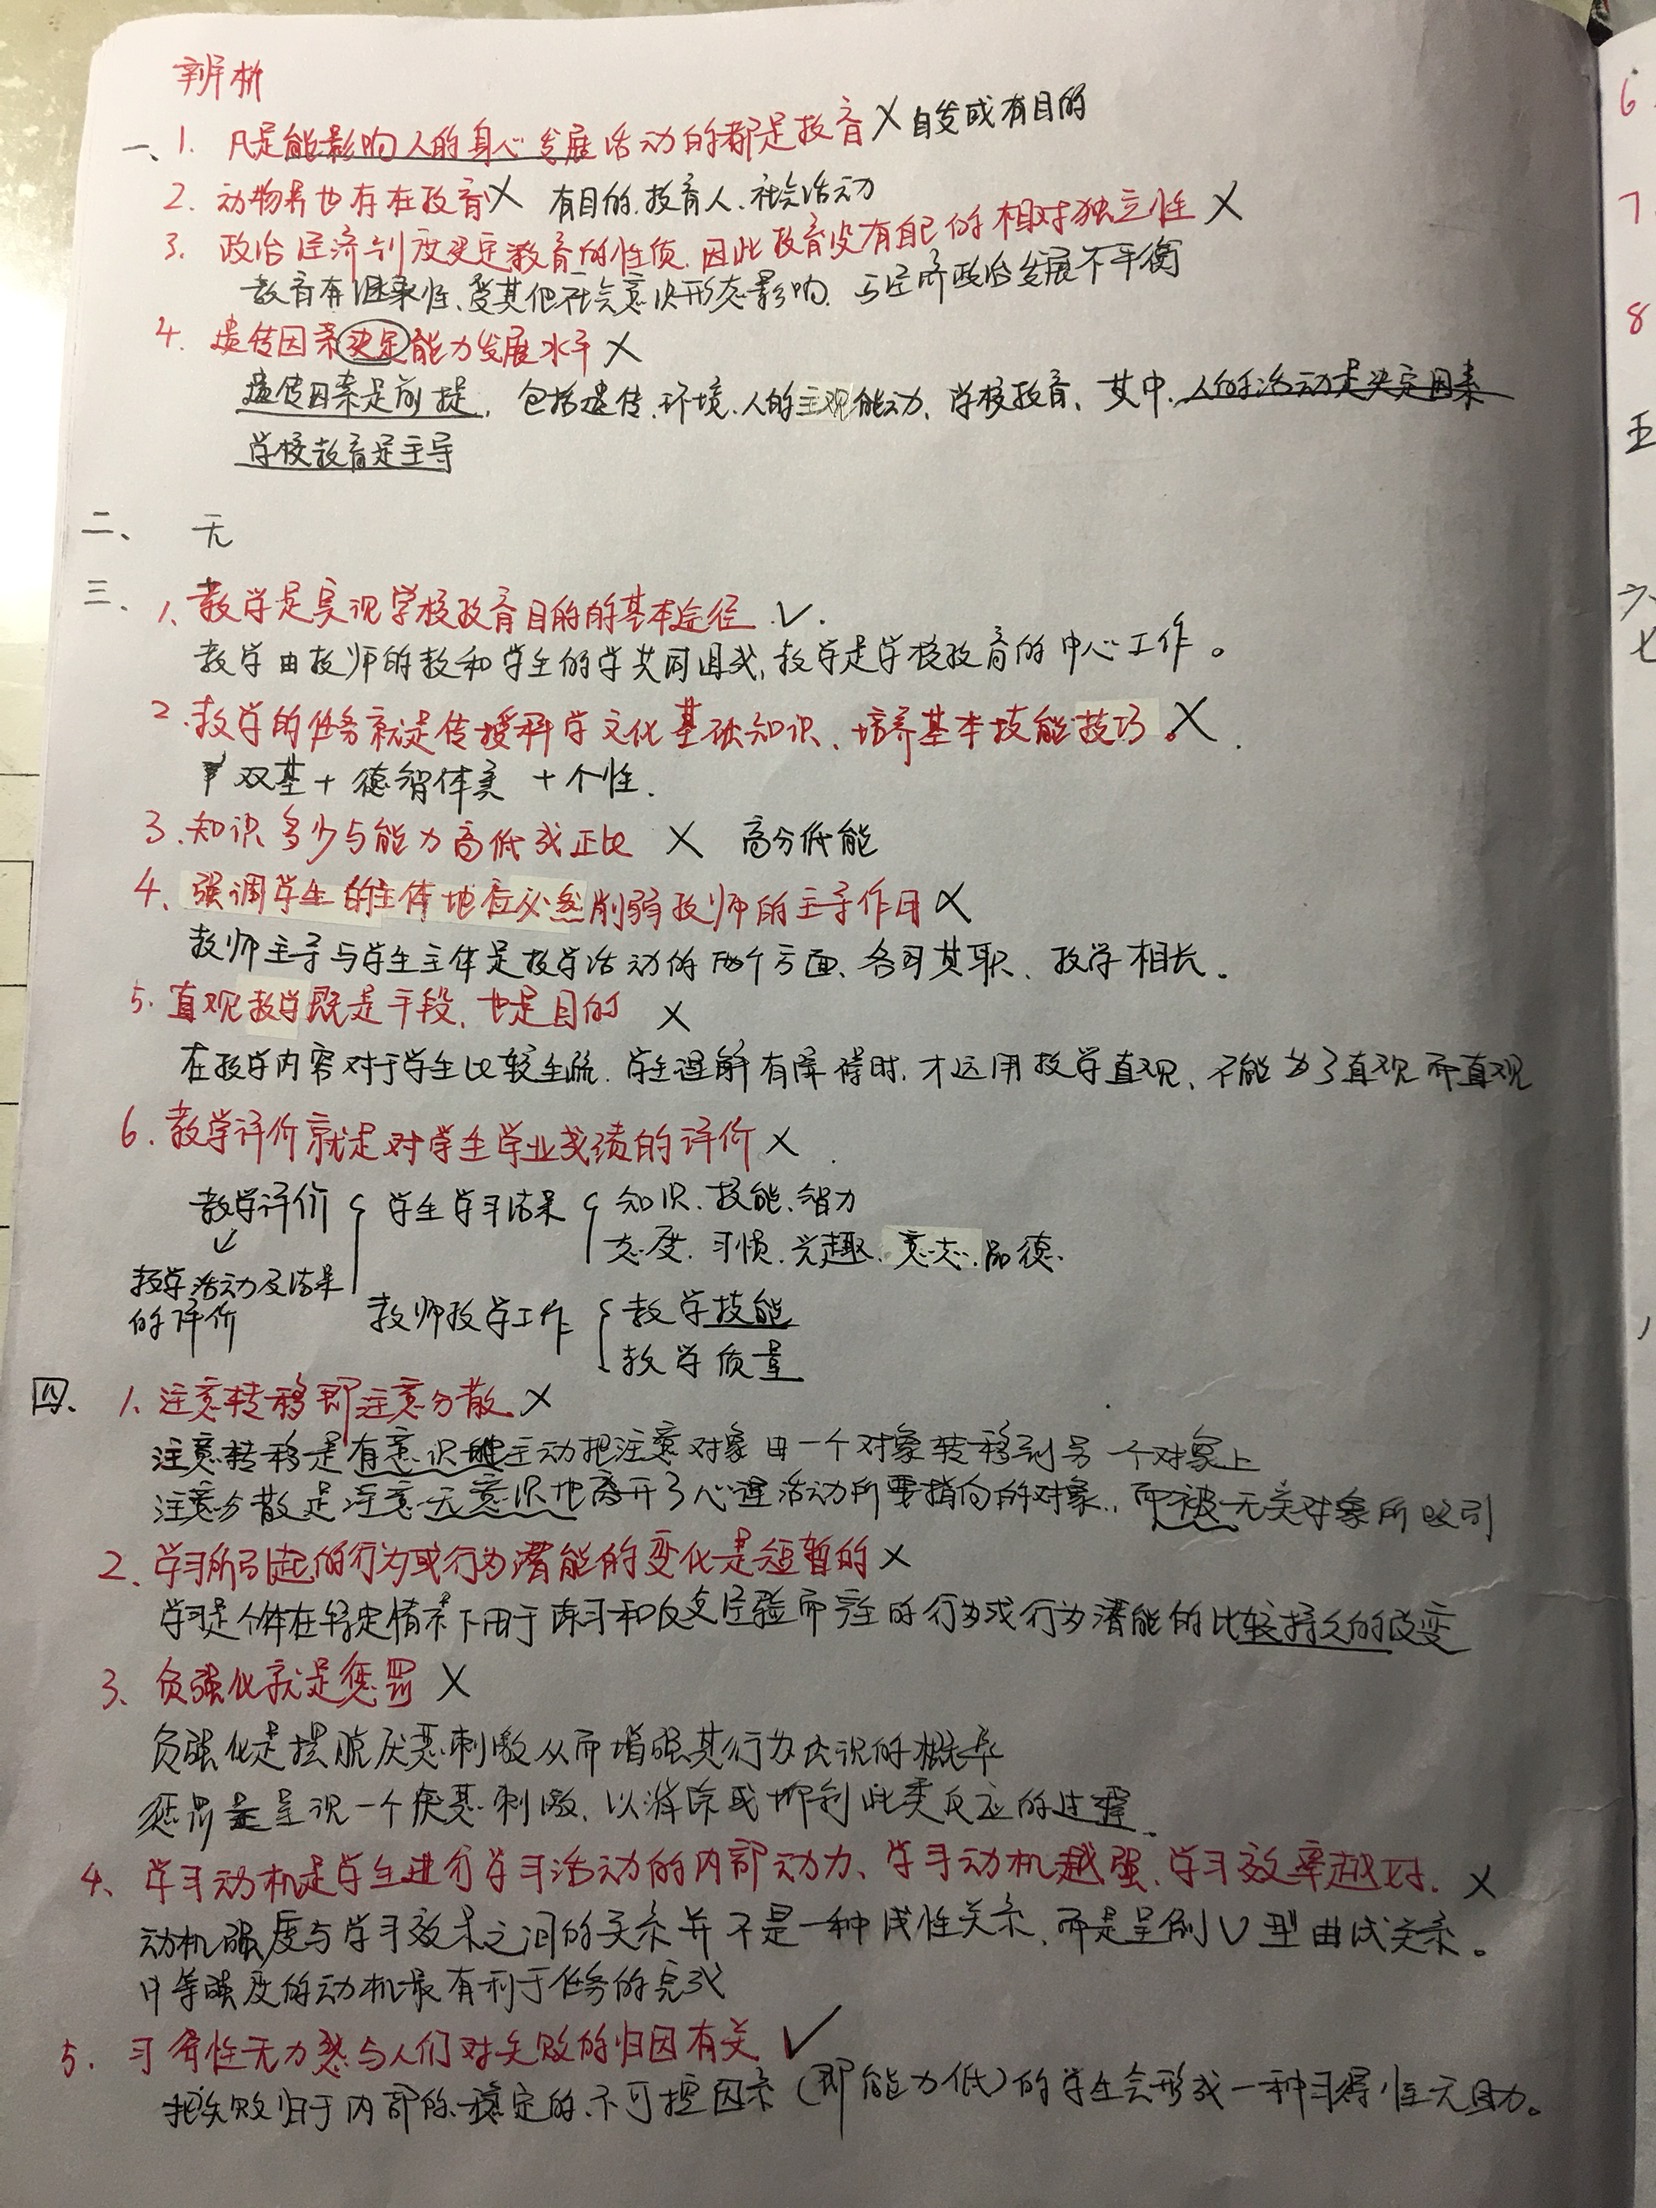 辨析
一、1. 凡是能影响人的身心发展活动的都是教育 X 自发或有目的
2. 动物界也存在教育 X 有目的、教育人、社会活动
3. 政治经济制度决定教育的性质,因此教育没有自己的相对独立性 X
教育有继承性、受其他社会意识形态影响、与经济政治发展不平衡
4. 遗传因素决定能力发展水平 X
遗传因素是前提,包括遗传、环境、人的主观能动、学校教育、其中,人的活动是决定因素
学校教育是主导
二、无
三、1、教学是实现学校教育目的的基本途径 ✓.
教学由教师的教和学生的学共同组成,教学是学校教育的中心工作。
2.教学的任务就是传授科学文化基础知识、培养基本技能技巧。X
双基+德智体美+个性.
3.知识多少与能力高低成正比 X 高分低能
4、强调学生的主体地位必然削弱教师的主导作用 X
教师主导与学生主体是教学活动的两个方面、各司其职、教学相长。
5.直观教学既是手段,也是目的 X
在教学内容对于学生比较生疏,学生理解有障碍时,才运用教学直观、不能为了直观而直观
6.教学评价就是对学生学业成绩的评价 X
教学评价 学生学习结果 知识、技能、智力
态度、习惯、兴趣、意志、品德.
教学活动及结果
的评价 教师教学工作 教学技能
教学质量
四、1、注意转移即注意分散 X
注意转移是有意识地主动把注意对象由一个对象转移到另一个对象上
注意分散是注意无意识地离开了心理活动所要指向的对象,而被无关对象所吸引
2、学习所引起的行为或行为潜能的变化是短暂的 X
学习是个体在特定情景下由于练习和反复经验而产生的行为或行为潜能的比较持久的改变
3、负强化就是惩罚 X
负强化是摆脱厌恶刺激从而增强其行为出现的概率
惩罚是呈现一个厌恶刺激,以消除或抑制此类反应的过程
4、学习动机是学生进行学习活动的内部动力、学习动机越强、学习效率越好. X
动机强度与学习效果之间的关系并不是一种线性关系,而是呈倒U型曲线关系。
中等强度的动机最有利于任务的完成
5. 习得性无力感与人们对失败的归因有关 ✓
把失败归于内部的、稳定的、不可控因素(即能力低)的学生会形成一种习得性无助。
6
7
8
五
六
七